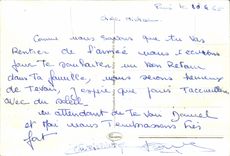 Paris le 10 6 68
Cher Michel
Comme nous savons que tu vas
Rentrer de l'armée nous t'écrivons
pour te souhaiter un bon Retour
dans Ta famille, nous serons heureux
de Te voir, J'espère que
avec du soleil
en attendant de Te voir Daniel
et Moi nous T'embrassons Très
fort